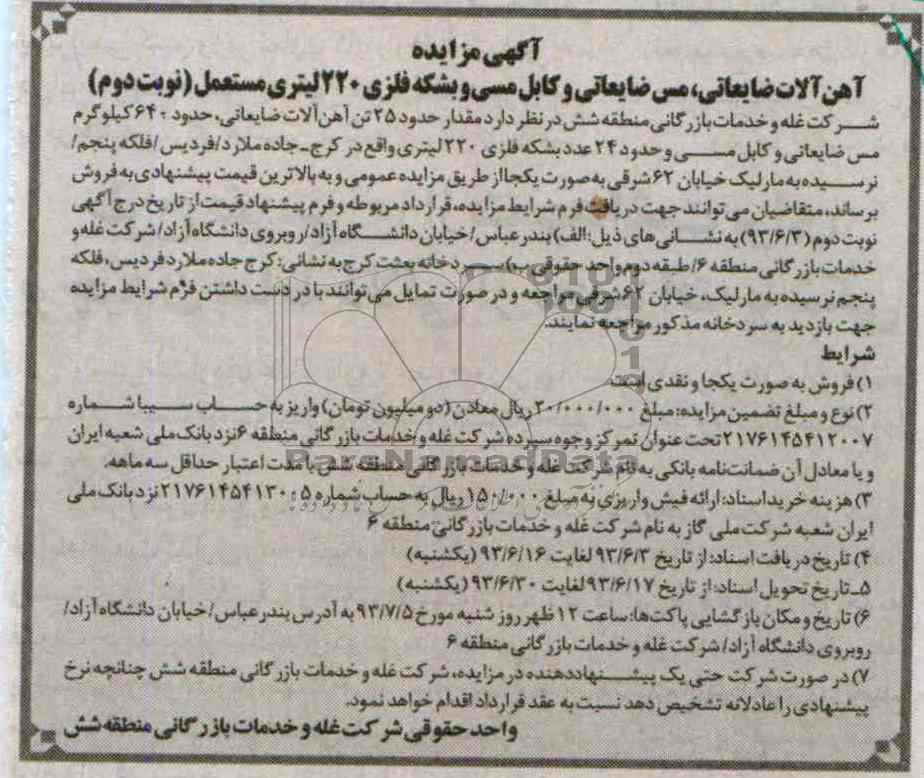 آگهی مزایده
آهن آلات ضایعاتی، مس ضایعاتی و کابل مسی و بشکه فلزی ۲۲۰ لیتری مستعمل (نوبت دوم)
شرکت غله و خدمات بازرگانی منطقه شش در نظر دارد مقدار حدود ۲۵ تن آهن آلات ضایعاتی، حدود ۶۴۰ کیلوگرم
مس ضایعاتی و کابل مسی و حدود ۲۴ عدد بشکه فلزی ۲۲۰ لیتری واقع در کرج ـ جاده ملارد/فردیس/فلکه پنجم/
نرسیده به مارلیک خیابان ۶۲ شرقی به صورت یکجا از طریق مزایده عمومی و به بالاترین قیمت پیشنهادی به فروش
برساند، متقاضیان می توانند جهت دریافت فرم شرایط مزایده، قرارداد مربوطه و فرم پیشنهاد قیمت از تاریخ درج آگهی
نوبت دوم (۹۳/۶/۳) به نشانی های ذیل: الف) بندرعباس/خیابان دانشگاه آزاد/روبروی دانشگاه آزاد/شرکت غله و
خدمات بازرگانی منطقه ۶/طبقه دوم واحد حقوقی ب) سردخانه بعثت کرج به نشانی: کرج جاده ملارد فردیس، فلکه
پنجم نرسیده به مارلیک، خیابان ۶۲ شرقی مراجعه و در صورت تمایل می توانند با در دست داشتن فرم شرایط مزایده
جهت بازدید به سردخانه مذکور مراجعه نمایند.
شرایط
۱) فروش به صورت یکجا و نقدی است
۲) نوع و مبلغ تضمین مزایده: مبلغ ۲۰/۰۰۰/۰۰۰ ریال معادل (دو میلیون تومان) واریز به حساب سیبا شماره
۲۱۷۶۱۴۵۴۱۲۰۰۷ تحت عنوان تمرکز وجوه سپرده شرکت غله و خدمات بازرگانی منطقه ۶ نزد بانک ملی شعبه ایران
و یا معادل آن ضمانت نامه بانکی به نام شرکت غله و خدمات بازرگانی منطقه شش با مدت اعتبار حداقل سه ماهه.
۳) هزینه خرید اسناد: ارائه فیش واریزی به مبلغ ۱۵۰/۰۰۰ ریال به حساب شماره ۲۱۷۶۱۴۵۴۱۳۰۰۵ نزد بانک ملی
ایران شعبه شرکت ملی گاز به نام شرکت غله و خدمات بازرگانی منطقه ۶
۴) تاریخ دریافت اسناد: از تاریخ ۹۳/۶/۳ لغایت ۹۳/۶/۱۶ (یکشنبه)
۵ـ تاریخ تحویل اسناد: از تاریخ ۹۳/۶/۱۷ لغایت ۹۳/۶/۳۰ (یکشنبه)
۶) تاریخ و مکان بازگشایی پاکت ها: ساعت ۱۲ ظهر روز شنبه مورخ ۹۳/۷/۵ به آدرس بندرعباس/خیابان دانشگاه آزاد/
روبروی دانشگاه آزاد/ شرکت غله و خدمات بازرگانی منطقه ۶
۷) در صورت شرکت حتی یک پیشنهاددهنده در مزایده، شرکت غله و خدمات بازرگانی منطقه شش چنانچه نرخ
پیشنهادی را عادلانه تشخیص دهد نسبت به عقد قرارداد اقدام خواهد نمود.
واحد حقوقی شرکت غله و خدمات بازرگانی منطقه شش
ParsNamadData